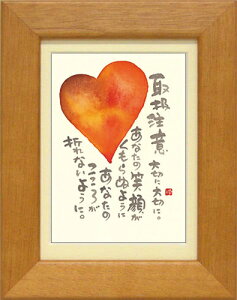 取扱注意
大切に大切に。
あなたの笑顔が
くもらぬように
あなたの
こころが
折れないように。